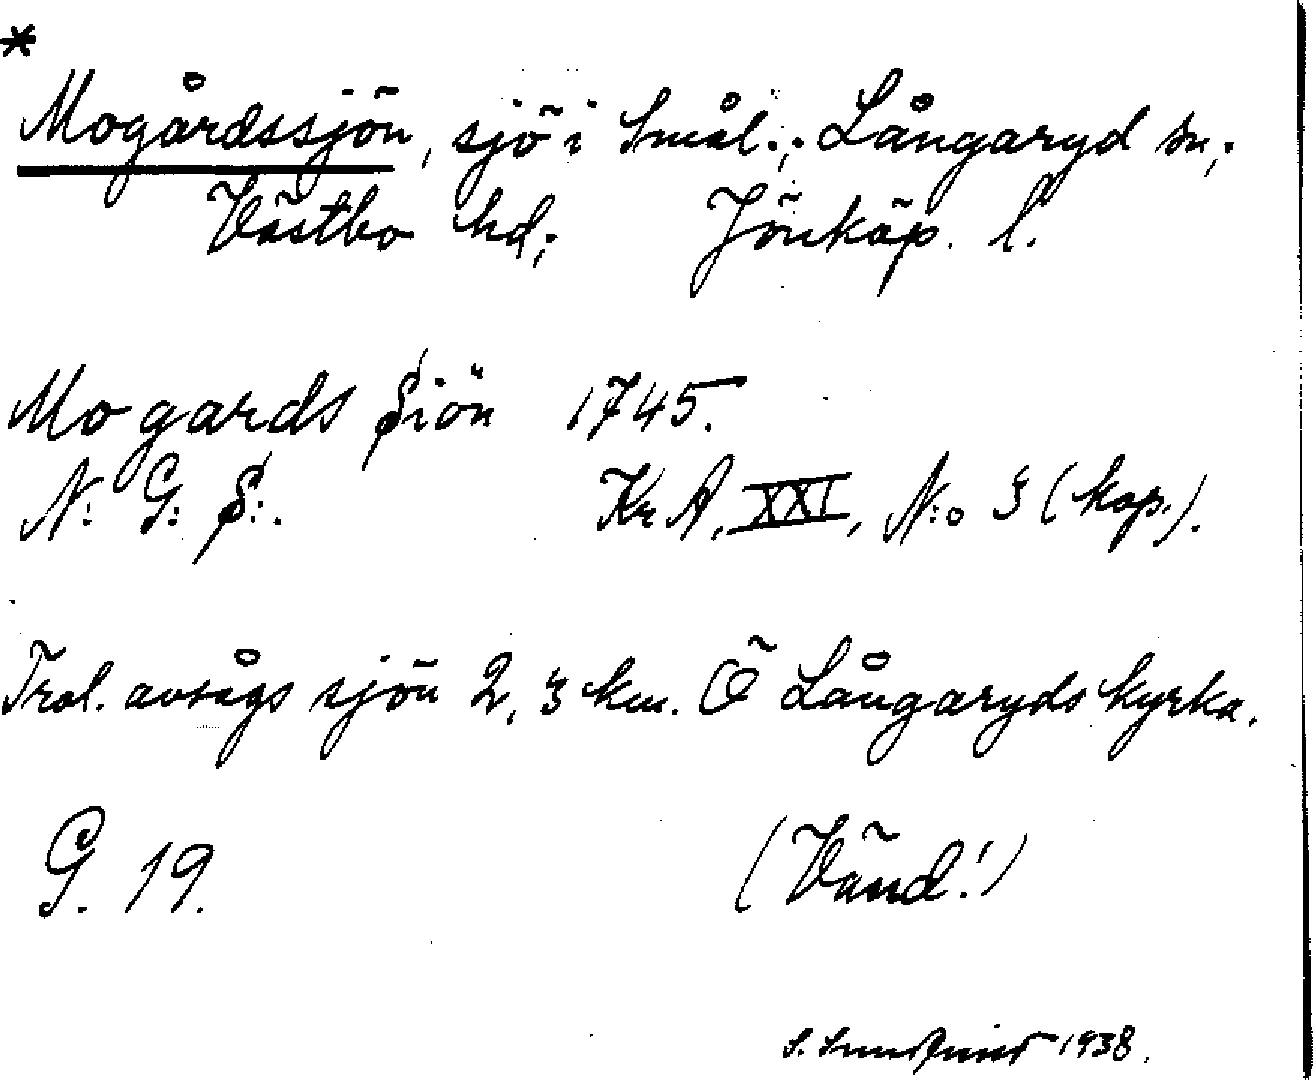 *
Mogårdssjön, sjö i Smål.; Långaryd sn;
Västbo hd; Jönköp. l.
Mogards Siön 1745.
N: G: S:. KrA, XXI, N:o 3 (kop.).
Trol. avsågs sjön 2,3 km. Ö Långaryds kyrka.
G. 19. (Vänd!)
S. Sundquist 1938.